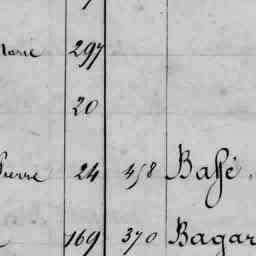 Marie 297
20
Pierre 24 458 Bassé,
169 370 Bagar